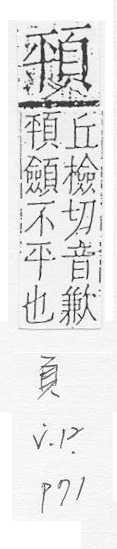 𩒣
丘檢切音歉
𩒣顩不平也
頁
v.12
p71